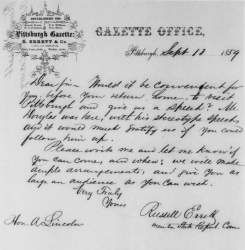 GAZETTE OFFICE,
Pittsburgh Gazette:
Pittsburgh, Sept 12 1859
Dear Sir - Would it be convenient for
you, before you return home, to visit
Pittsburgh and give us a speech? Mr
Douglas was here, with his stereotype speech
and it would much gratify us if you could
follow him up.
Please write me and let me know if
you can come, and when; we will make
ample arrangements, and give you as
large an audience as you can wish.
Very Truly
Yours
Russell Errett
Hon. A Lincoln